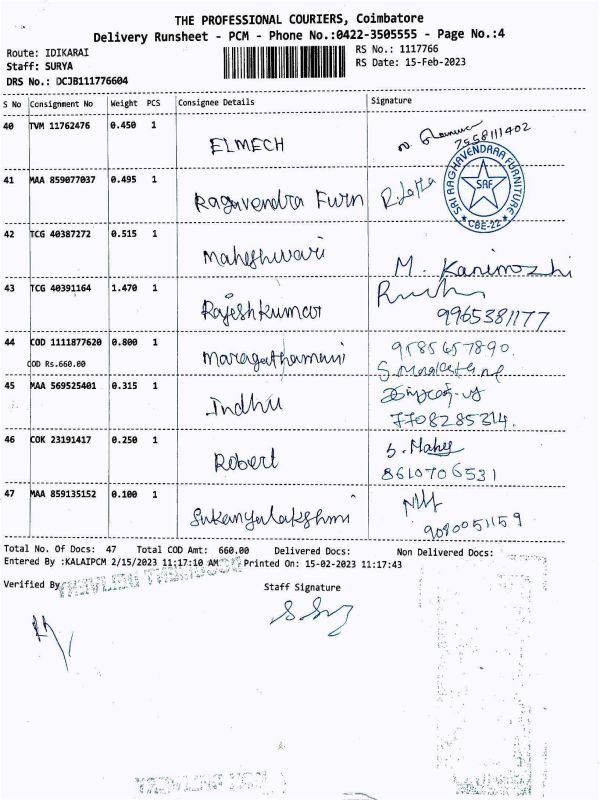 THE PROFESSIONAL COURIERS, Coimbatore
Delivery Runsheet - PCM - Phone No.:0422-3505555 - Page No.:4
Route: IDIKARAI RS No.: 1117766
Staff: SURYA RS Date: 15-Feb-2023
DRS No.: DCJB111776604
S No Consignment No Weight PCS Consignee Details Signature
40 TVM 11762476 0.450 1 ELMECH 7558111402
41 MAA 859077037 0.495 1 Ragavendra Furn SRI RAGHAVENDARA FURNITURE SRF ★ CBE-22 ★
42 TCG 40387272 0.515 1 Maheshwari M. Kanimozhi
43 TCG 40391164 1.470 1 Rajeshkumar 9965381177
44 COD 1111877620 0.800 1 Maragathamani 9585657890.
COD Rs.660.00
45 MAA 569525401 0.315 1 Indhu 7708285314.
46 COK 23191417 0.250 1 Robert 8610706531
47 MAA 859135152 0.100 1 Sukanyalakshmi 9080051159
Total No. Of Docs: 47 Total COD Amt: 660.00 Delivered Docs: Non Delivered Docs:
Entered By :KALAIPCM 2/15/2023 11:17:10 AM Printed On: 15-02-2023 11:17:43
Verified By Staff Signature